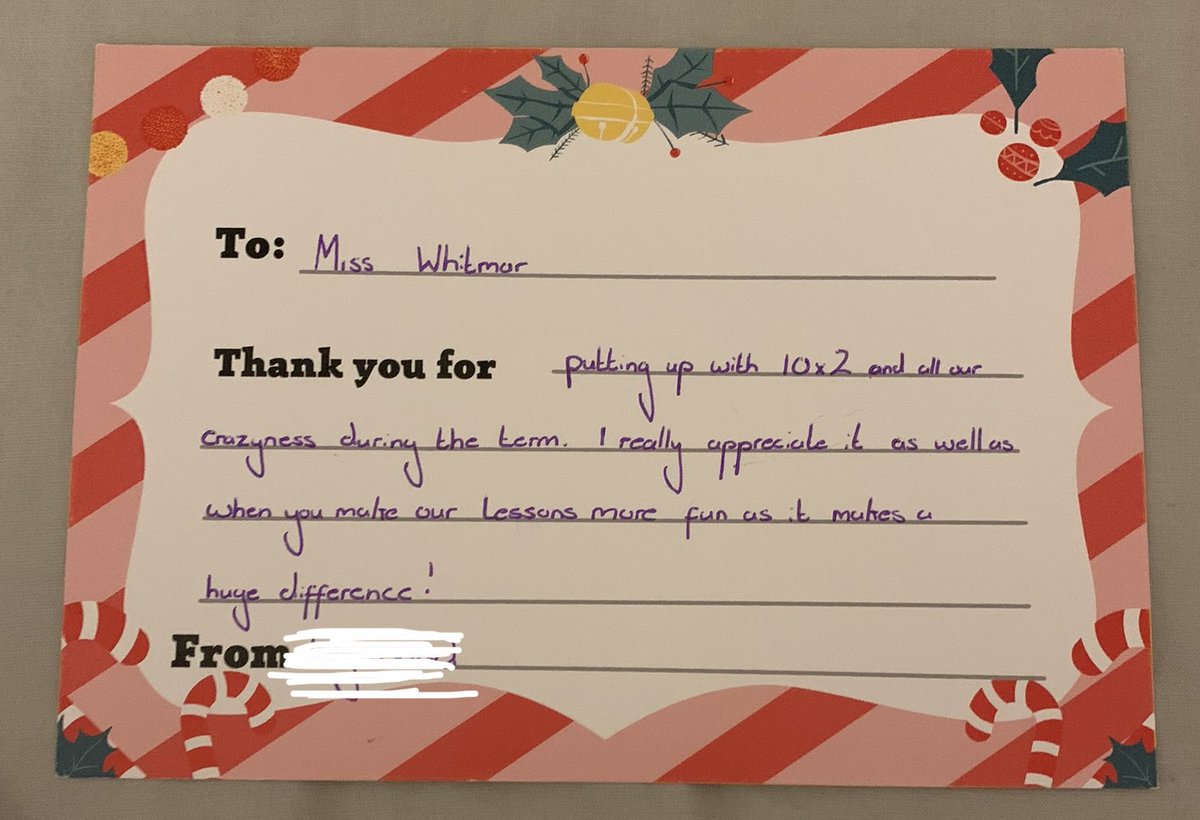 To: Miss Whitmor
Thank you for putting up with 10x2 and all our
crazyness during the term. I really appreciate it as well as
when you make our lessons more fun as it makes a
huge difference!
From